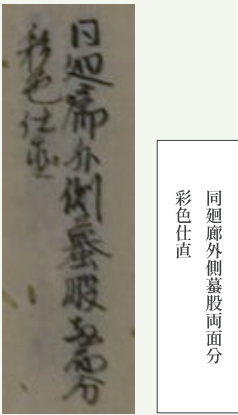 同廻廊外側蟇股両面分
彩色仕直
同廻廊外側蟇股両面分
彩色仕直